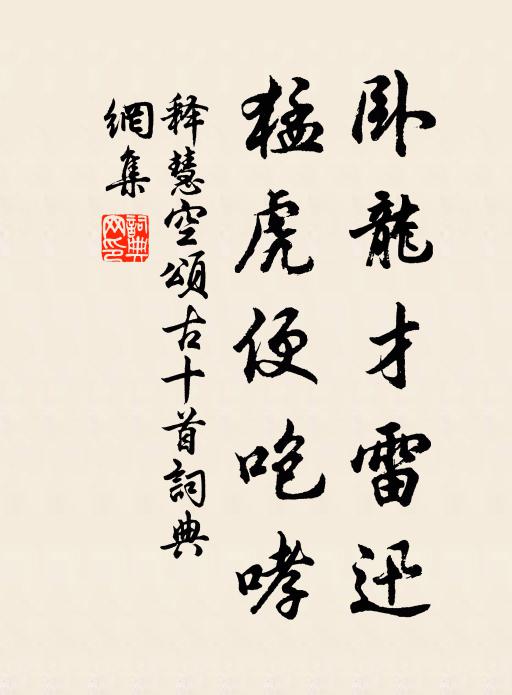 卧龍才雷迅
猛虎便咆哮
释慧空頌古十首詞典
網集
詞典
網印